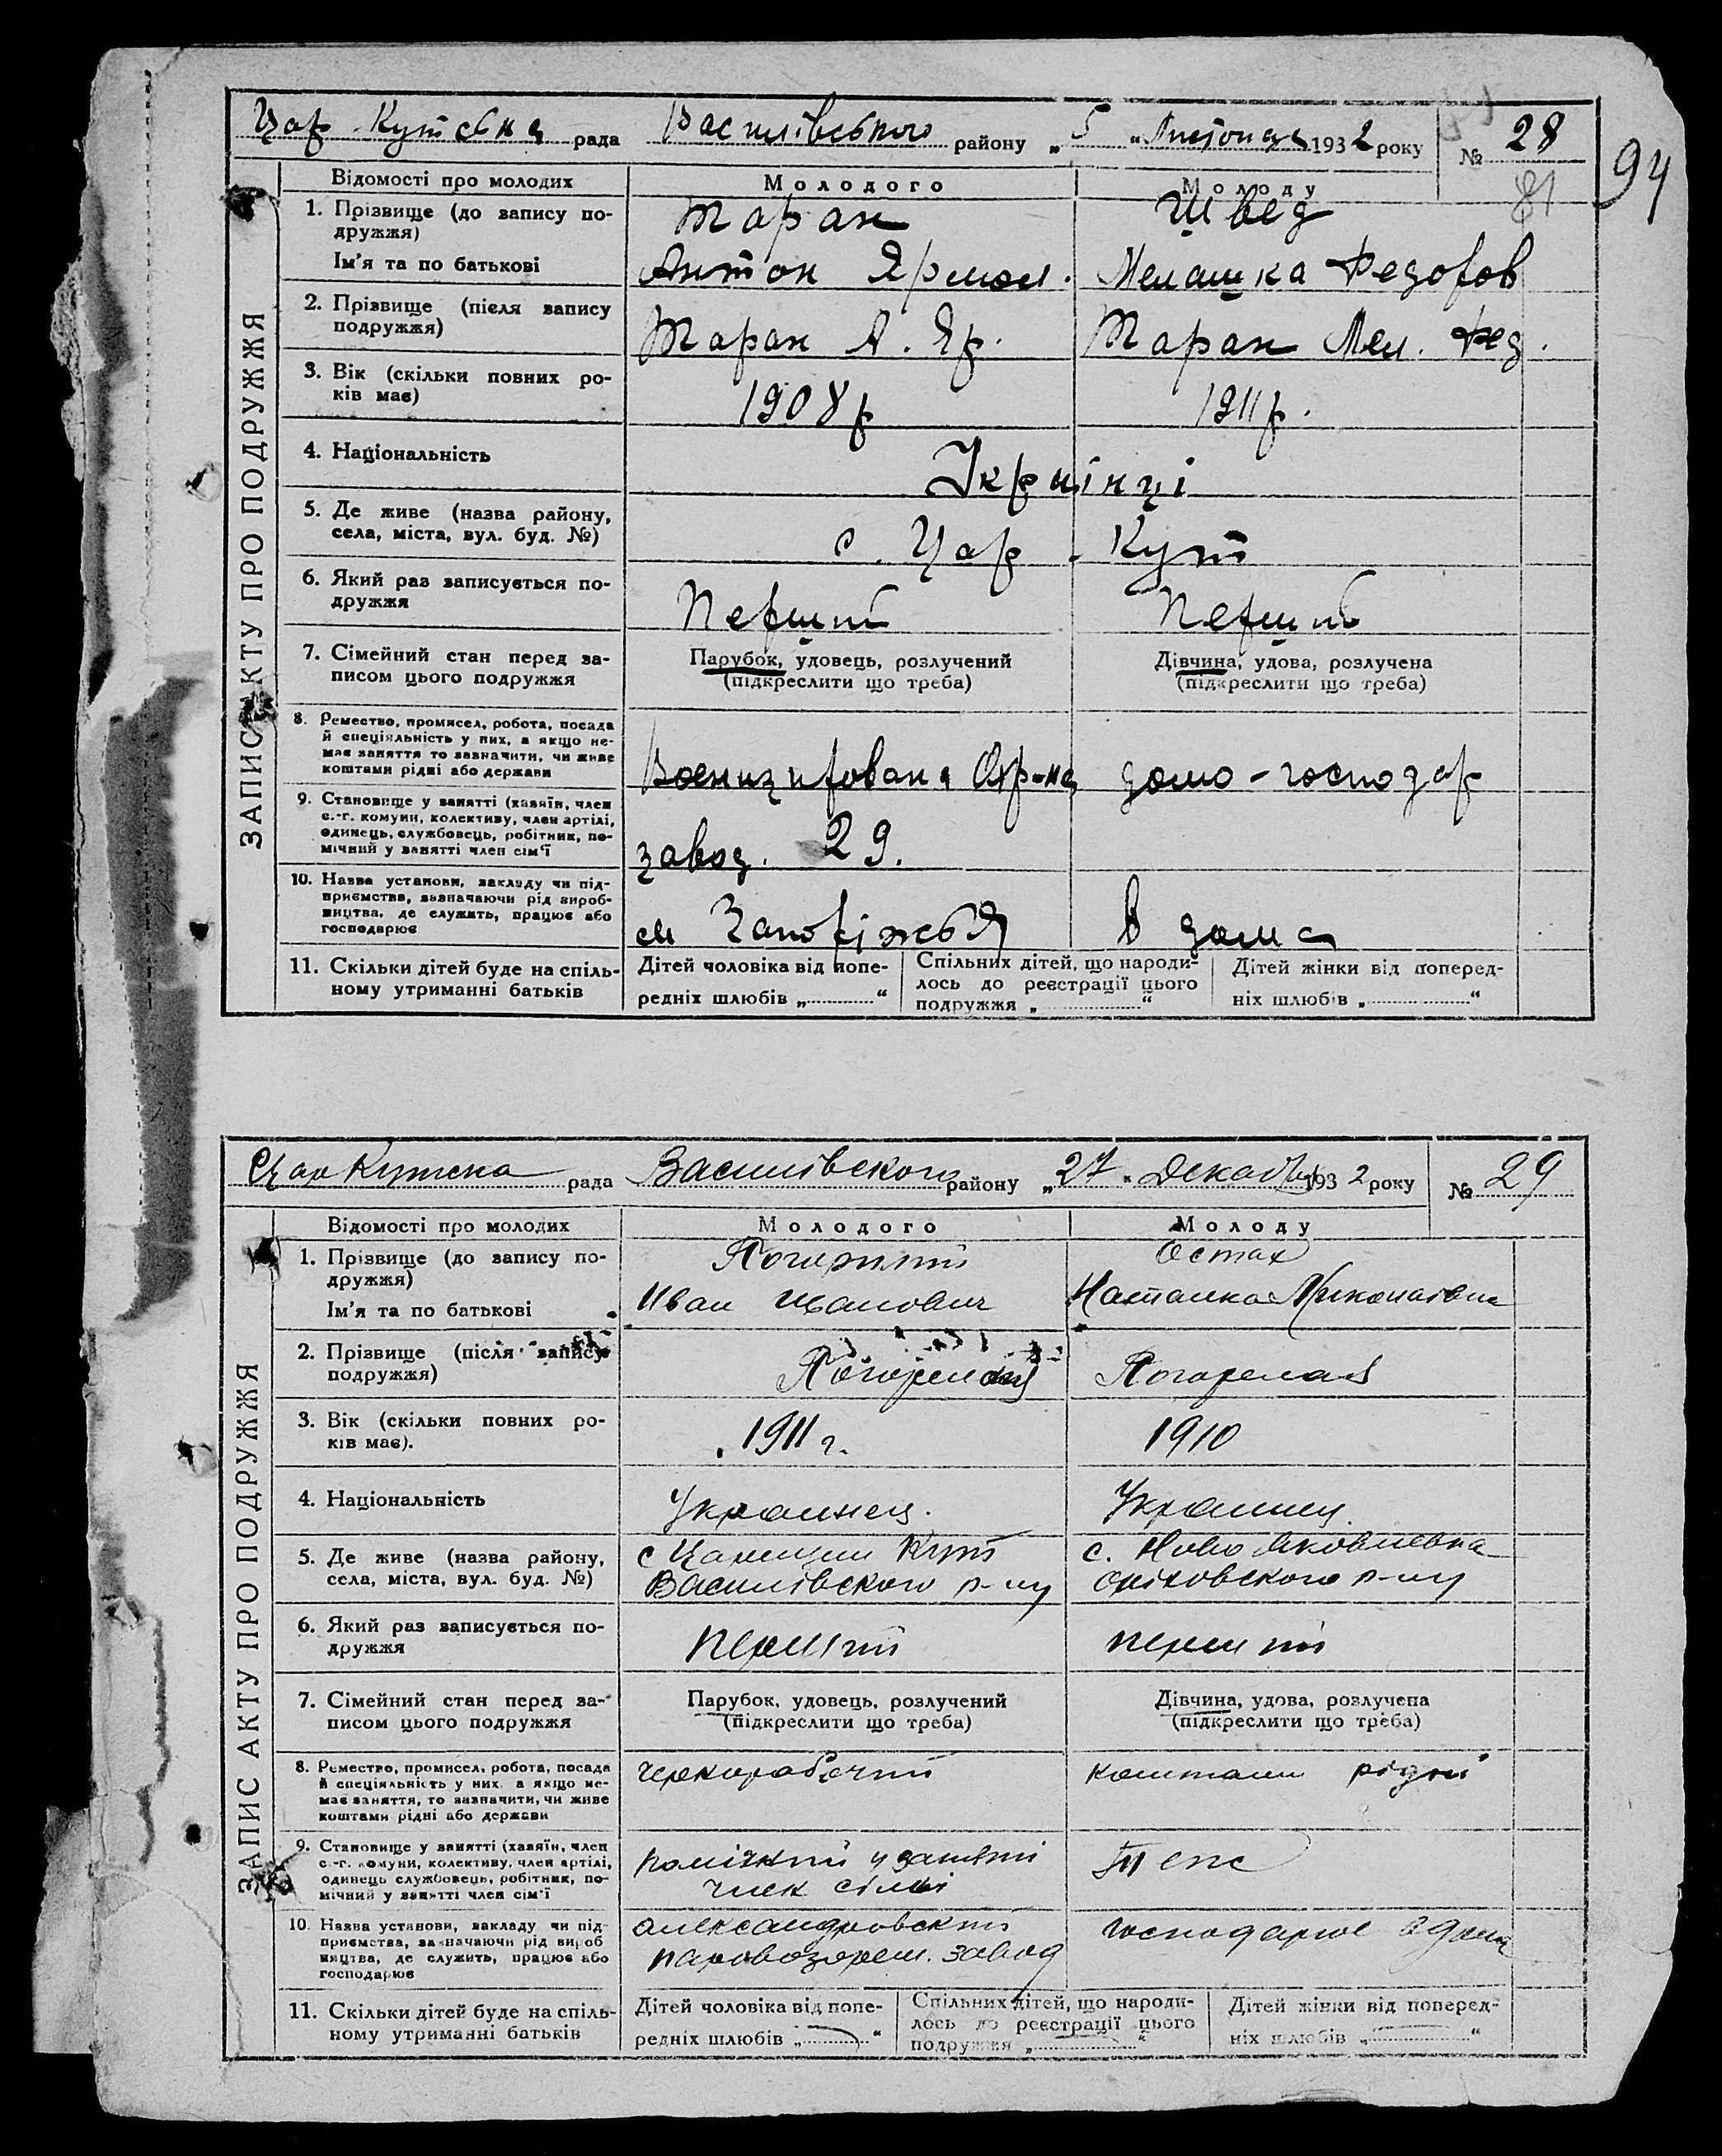 Цар-Кутська рада Василівського району „ 5 " Листопада 1932 року № 28
94
81
ЗАПИС АКТУ ПРО ПОДРУЖЖЯ
Відомості про молодих Молодого Молоду
1. Прізвище (до запису по-
дружжя)
Таран Швед
Ім'я та по батькові Антон Ярмол. Мелашка Федоров
2. Прізвище (після запису
подружжя)
Таран А. Яр. Таран Мел. Фед.
3. Вік (скільки повних ро-
ків має)
1908 р 1911 р.
4. Національність Українці
5. Де живе (назва району,
села, міста, вул. буд. №)
с. Цар - Кут
6. Який раз записується по-
дружжя
Перший Перший
7. Сімейний стан перед за-
писом цього подружжя
Парубок, удовець, розлучений
(підкреслити що треба)
Дівчина, удова, розлучена
(підкреслити що треба)
8. Ремество, промисел, робота, посада
й спеціяльність у них, а якщо не-
має заняття то зазначити, чи живе
коштами рідні або держави
Воєнизирована Охр-на домо-господар
9. Становище у занятті (хазяїн, член
с.-г. комуни, колективу, член артілі,
одинець, службовець, робітник, по-
мічний у занятті член сім'ї
завод. 29.
10. Назва установи, закладу чи під-
приємства, зазначаючи рід вироб-
ництва, де служить, працює або
господарює
м Запоріжжя в дома
11. Скільки дітей буде на спіль-
ному утриманні батьків
Дітей чоловіка від попе-
редніх шлюбів „ "
Спільних дітей, що народи-
лось до реєстрації цього
подружжя „ "
Дітей жінки від поперед-
ніх шлюбів „ "
Цар Кутска рада Василівского району „ 27 " Декабря 1932 року № 29
ЗАПИС АКТУ ПРО ПОДРУЖЖЯ
Відомості про молодих Молодого Молоду
1. Прізвище (до запису по-
дружжя)
Погорилий Остах
Ім'я та по батькові Иван Иванович Наталка Миколаівна
2. Прізвище (після запису
подружжя)
Погорелый Погорелая
3. Вік (скільки повних ро-
ків має).
1911 г. 1910
4. Національність Украинец. Украинец.
5. Де живе (назва району,
села, міста, вул. буд. №)
с Царицин Кут с. Ново Яковлевка
Василівского р-ну Оріховского р-ну
6. Який раз записується по-
дружжя
перший перший
7. Сімейний стан перед за-
писом цього подружжя
Парубок, удовець, розлучений
(підкреслити що треба)
Дівчина, удова, розлучена
(підкреслити що треба)
8. Ремество, промисел, робота, посада
й спеціяльність у них, а якщо не-
має заняття, то зазначити, чи живе
коштами рідні або держави
чернорабочий коштами рідні
9. Становище у занятті (хазяїн, член
с.-г. комуни, колективу, член артілі,
одинець службовець, робітник, по-
мічний у занятті член сім'ї
помічний у занятті
член сімьі
10. Назва установи, закладу чи під-
приємства, зазначаючи рід вироб
ництва, де служить, працює або
господарює
Александровский господарює в дома
паровозорем. завод
11. Скільки дітей буде на спіль-
ному утриманні батьків
Дітей чоловіка від попе-
редніх шлюбів „ "
Спільних дітей, що народи-
лось до реєстрації цього
подружжя „ "
Дітей жінки від поперед-
ніх шлюбів „ "